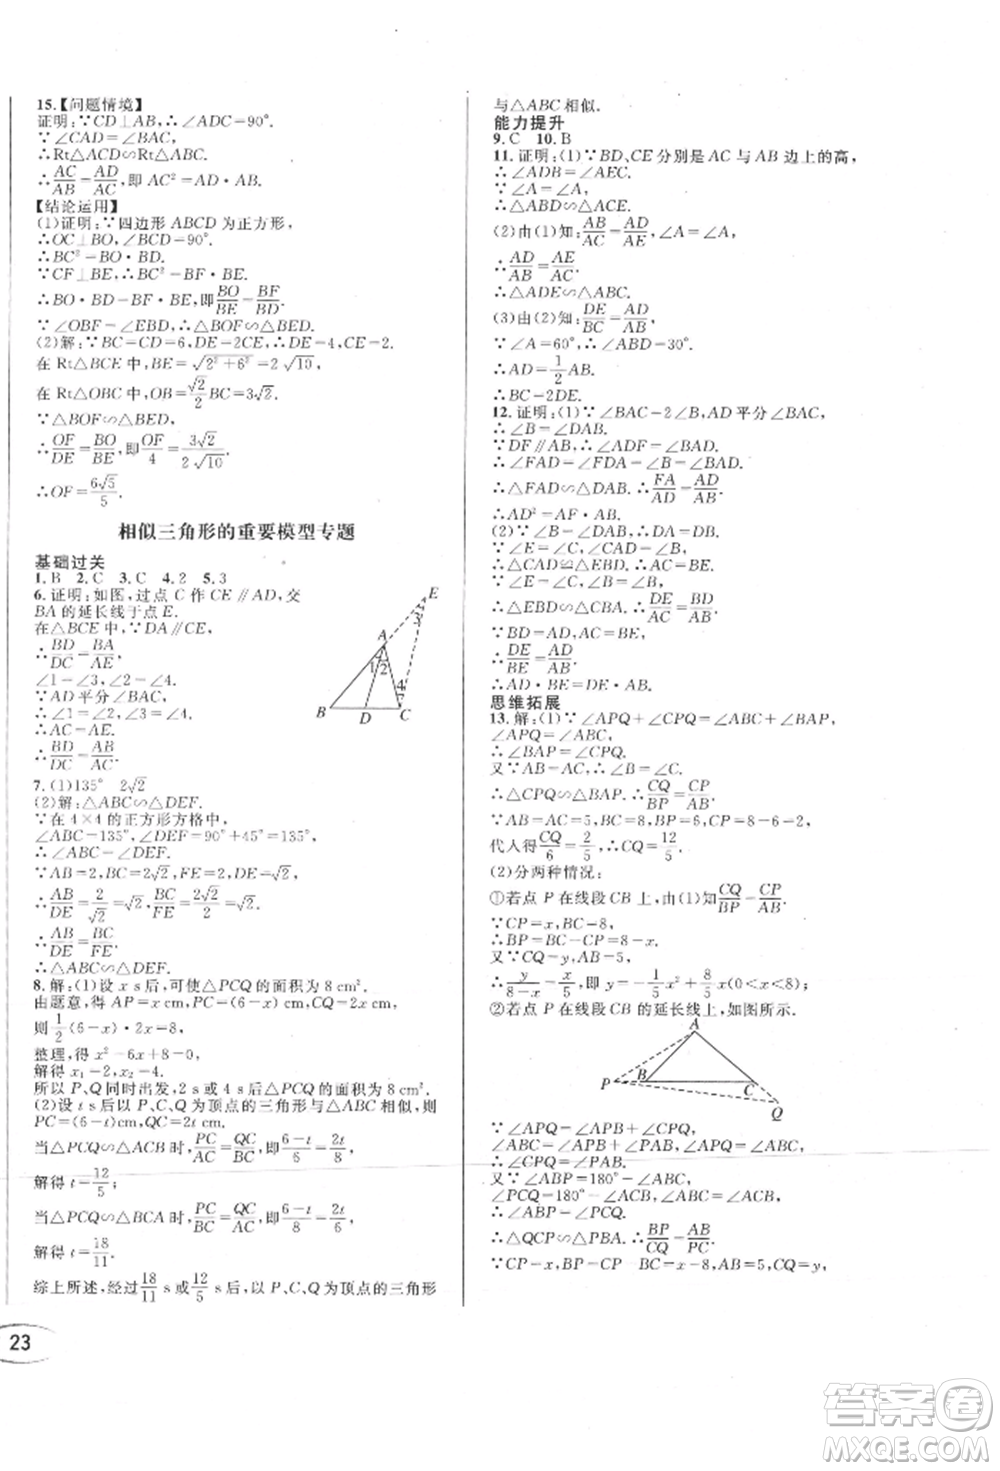 15.【问题情境】
证明:∵CD⊥AB,∴∠ADC=90°.
∵∠CAD=∠BAC,
∴Rt△ACD∽Rt△ABC.
∴AC/AB=AD/AC,即 AC²=AD·AB.
【结论运用】
(1)证明:∵四边形 ABCD 为正方形,
∴OC⊥BO,∠BCD=90°.
∴BC²=BO·BD.
∵CF⊥BE,∴BC²=BF·BE.
∴BO·BD=BF·BE,即BO/BE=BF/BD.
∵∠OBF=∠EBD,∴△BOF∽△BED.
(2)解:∵BC=CD=6,DE=2CE,∴DE=4,CE=2.
在 Rt△BCE 中,BE=√(2²+6²)=2√10,
在 Rt△OBC 中,OB=√2/2 BC=3√2.
∵△BOF∽△BED,
∴OF/DE=BO/BE,即OF/4=3√2/2√10.
∴OF=6√5/5.
相似三角形的重要模型专题
基础过关
1.B 2.C 3.C 4.2 5.3
6.证明:如图,过点 C 作 CE∥AD,交
BA 的延长线于点 E.
在△BCE 中,∵DA∥CE,
∴BD/DC=BA/AE.
∠1=∠3,∠2=∠4.
∵AD 平分∠BAC,
∴∠1=∠2,∠3=∠4.
∴AC=AE.
∴BD/DC=AB/AC.
E
A
1 2
3
4
B D C
7.(1)135° 2√2
(2)解:△ABC∽△DEF.
∵在 4×4 的正方形方格中,
∠ABC=135°,∠DEF=90°+45°=135°,
∴∠ABC=∠DEF.
∵AB=2,BC=2√2,FE=2,DE=√2,
∴AB/DE=2/√2=√2,BC/FE=2√2/2=√2.
∴AB/DE=BC/FE.
∴△ABC∽△DEF.
8.解:(1)设 x s后,可使△PCQ 的面积为 8 cm².
由题意,得 AP=x cm,PC=(6-x)cm,CQ=2x cm,
则1/2(6-x)·2x=8,
整理,得 x²-6x+8=0,
解得 x₁=2,x₂=4.
所以 P、Q 同时出发,2 s或 4 s后△PCQ 的面积为 8 cm².
(2)设 t s后以 P、C、Q 为顶点的三角形与△ABC 相似,则
PC=(6-t)cm,QC=2t cm.
当△PCQ∽△ACB 时,PC/AC=QC/BC,即6-t/6=2t/8,
解得 t=12/5;
当△PCQ∽△BCA 时,PC/BC=QC/AC,即6-t/8=2t/6,
解得 t=18/11.
综上所述,经过18/11 s或12/5 s后,以 P、C、Q 为顶点的三角形
23
与△ABC 相似.
能力提升
9.C 10.B
11.证明:(1)∵BD、CE 分别是 AC 与 AB 边上的高,
∴∠ADB=∠AEC.
∵∠A=∠A,
∴△ABD∽△ACE.
(2)由(1)知:AB/AC=AD/AE,∠A=∠A,
∴AD/AB=AE/AC.
∴△ADE∽△ABC.
(3)由(2)知:DE/BC=AD/AB,
∵∠A=60°,∴∠ABD=30°.
∴AD=1/2AB.
∴BC=2DE.
12.证明:(1)∵∠BAC=2∠B,AD 平分∠BAC,
∴∠B=∠BAD=∠DAC.
∵DF∥AB,∴∠ADF=∠BAD.
∴∠FAD=∠FDA=∠B=∠DAB.
∴△FAD∽△DAB.∴FA/DA=AD/AB.
∴AD²=AF·AB.
(2)∵∠B=∠DAB,∴DA=DB.
∵∠E=∠C,∠B=∠DAC,
∴△CAD∽△EBD.
∴△EBD∽△CAD.∴DE/DC=BD/AD.
∵BD=AD,AC=BE,
∴DE/BE=AD/AC.
∴AD·AC=BD·BE.
思维拓展
13.解:(1)∵∠APQ+∠CPQ=∠B+∠BAP,
∠APQ=∠B,
∴∠BAP=∠CPQ.
又∵AB=AC,∴∠B=∠C.
∴△CPQ∽△BAP.∴CQ/BP=CP/AB.
∵AB=AC=5,BC=8,BP=6,CP=8-6=2,
代入得CQ/6=2/5,∴CQ=12/5.
(2)分两种情况:
①若点 P 在线段 CB 上,由(1)知CQ/BP=CP/AB,
∵CP=x,BC=8,
∴BP=BC-CP=8-x.
又∵CQ=y,AB=5,
∴y/8-x=x/5,即 y=-1/5x²+8/5x(0<x<8);
②若点 P 在线段 CB 的延长线上,如图所示.
A
P B C
Q
∵∠APQ=∠APB+∠CPQ,
∠ABC=∠APB+∠PAB,∠APQ=∠ABC,
∴∠CPQ=∠PAB.
又∵∠ABP=180°-∠ABC,
∠PCQ=180°-∠ACB,∠ABC=∠ACB,
∴∠ABP=∠PCQ.
∴△QCP∽△PBA.∴BP/CQ=AB/PC.
∵CP=x,BP=x-8,AB=5,CQ=y,
答案圈
MXQE.COM